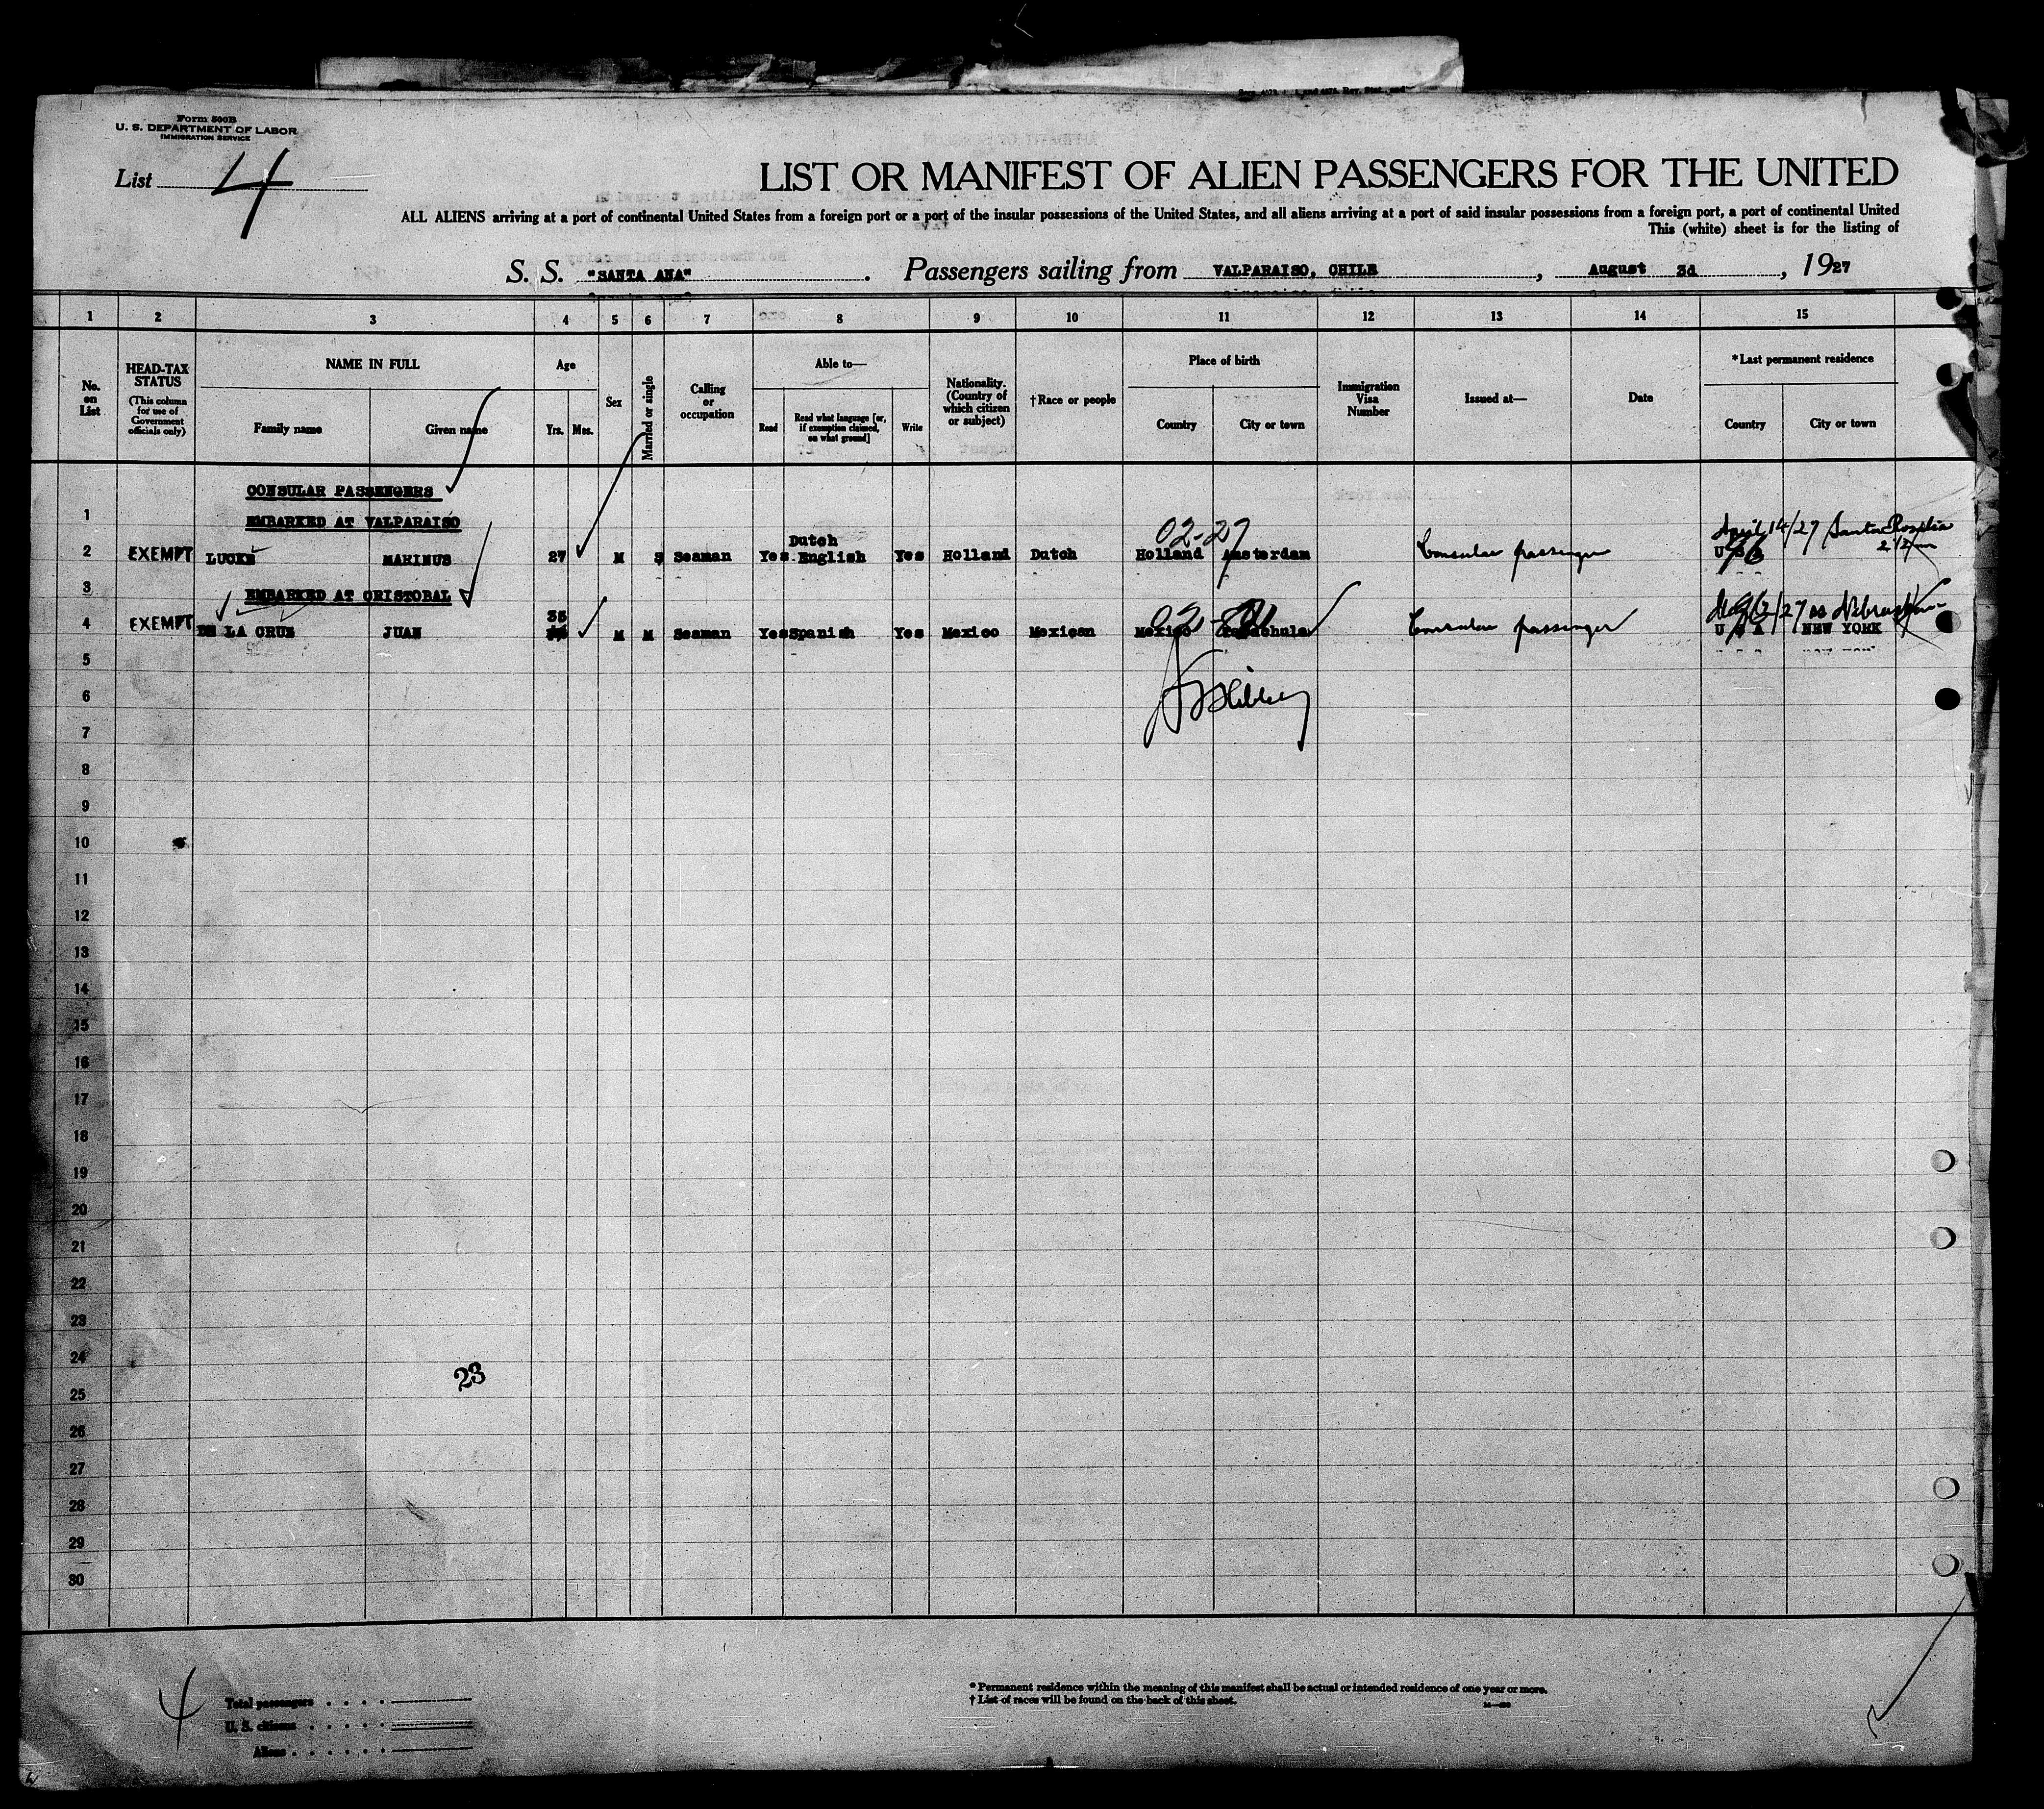 Form 500B
U. S. DEPARTMENT OF LABOR
IMMIGRATION SERVICE
List 4
LIST OR MANIFEST OF ALIEN PASSENGERS FOR THE UNITED
ALL ALIENS arriving at a port of continental United States from a foreign port or a port of the insular possessions of the United States, and all aliens arriving at a port of said insular possessions from a foreign port, a port of continental United
This (white) sheet is for the listing of
S. S. "SANTA ANA". Passengers sailing from VALPARAISO, CHILE, August 3d, 1927
1 2 3 4 5 6 7 8 9 10 11 12 13 14 15
No. on List
HEAD-TAX STATUS
(This column for use of Government officials only)
NAME IN FULL
Family name Given name
Age
Yrs. Mos.
Sex
Married or single
Calling or occupation
Able to—
Read
Read what language [or, if exemption claimed, on what ground]
Write
Nationality. (Country of which citizen or subject)
†Race or people
Place of birth
Country City or town
Immigration Visa Number
Issued at—
Date
*Last permanent residence
Country City or town
CONSULAR PASSENGERS
1 EMBARKED AT VALPARAISO
02-27 April 14/27
2 EXEMPT LUCKE MARINUS 27 M S Seaman Yes Dutch English Yes Holland Dutch Holland Amsterdam Consular passenger
3 EMBARKED AT CRISTOBAL
4 EXEMPT DE LA CRUZ JUAN 35 M M Seaman Yes Spanish Yes Mexico Mexican Mexico Consular passenger U S A NEW YORK
5
6
7
8
9
10
11
12
13
14
15
16
17
18
19
20
21
22
23
24
23
25
26
27
28
29
30
4
Total passengers
U. S. citizens
Aliens
* Permanent residence within the meaning of this manifest shall be actual or intended residence of one year or more.
† List of races will be found on the back of this sheet.